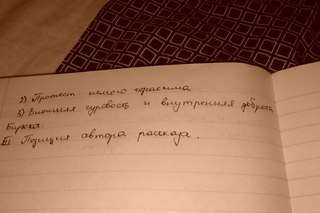 2) Протест немого Герасима
3) Внешняя суровость и внутренняя доброта
Бирюка.
III Позиция автора рассказа.